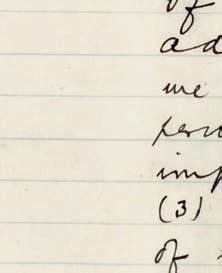 of
ad
we
per
imp
(3)
of